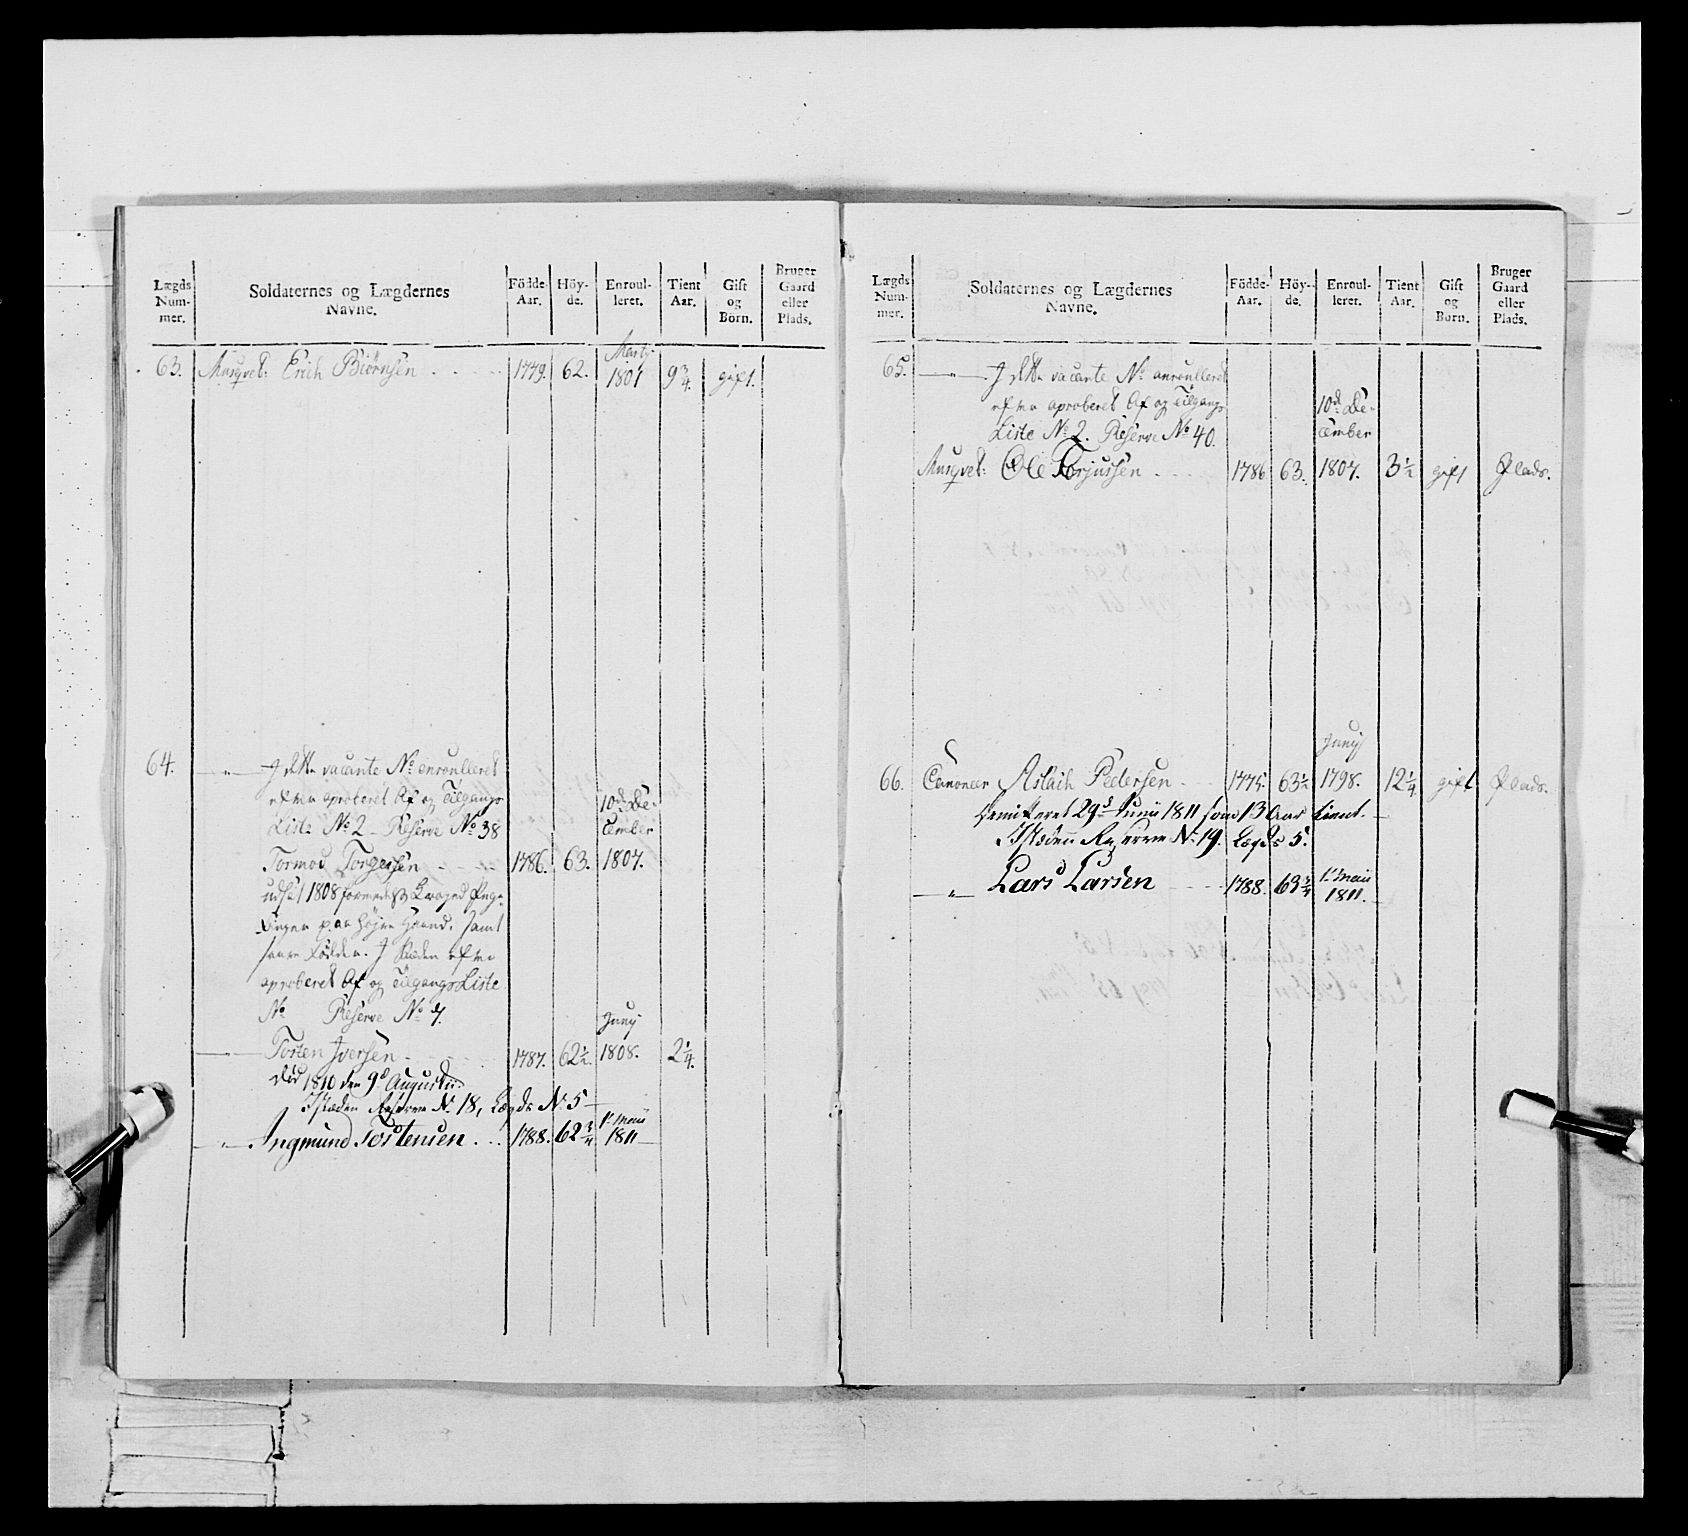 Lægds Num-mer.
Soldaternes og Lægdernes Navne.
Födde-Aar.
Höy-de.
Enroul-leret.
Tient Aar.
Gift og Börn.
Bruger Gaard eller Plads.
Marty
63. Musqvet: Erich Biørnsen 1779. 62. 1801 9 3/4. gift.
64. " I dette vacante No enroulleret
efter aproberet Af og Tilgangs
Liste No 2 Reserve No 38
10de De-
cember
Tormod Torgersen 1786. 63. 1807.
udsat 1808 formedelst
Højre Haand. samt
I Stæden efter
aproberet Af og Tilgangs Liste
No Reserve No 7.
Juny
Tosten Iversen 1787. 62 1/2. 1808. 2 1/4.
død 1810 den 9d Augustii.
Istæden Reserve No 18, Lægds No 5
1t Maii
" Ingmund Tostensen 1788. 62 3/4 1811
Lægds Num-mer.
Soldaternes og Lægdernes Navne.
Födde-Aar.
Höy-de.
Enroul-leret.
Tient Aar.
Gift og Born.
Bruger Gaard eller Plads.
65. " I dette vacante No enroulleret
efter aproberet Af og Tilgangs
Liste No 2. Reserve No 40.
10de De-
cember
Musqvet: Ole Torjussen 1786 63. 1807. 3 1/2 gift Plads.
Juny
66. Canoneer Aslach Pedersen 1775. 63 1/2 1798. 12 1/4 gift Plads.
Demitteret 29d Junii 1811 som 13 Aar tient.
Istæden Reserve No 19. Lægds 5.
1t Maii
" Lars Larsen 1788. 63 3/4 1811.